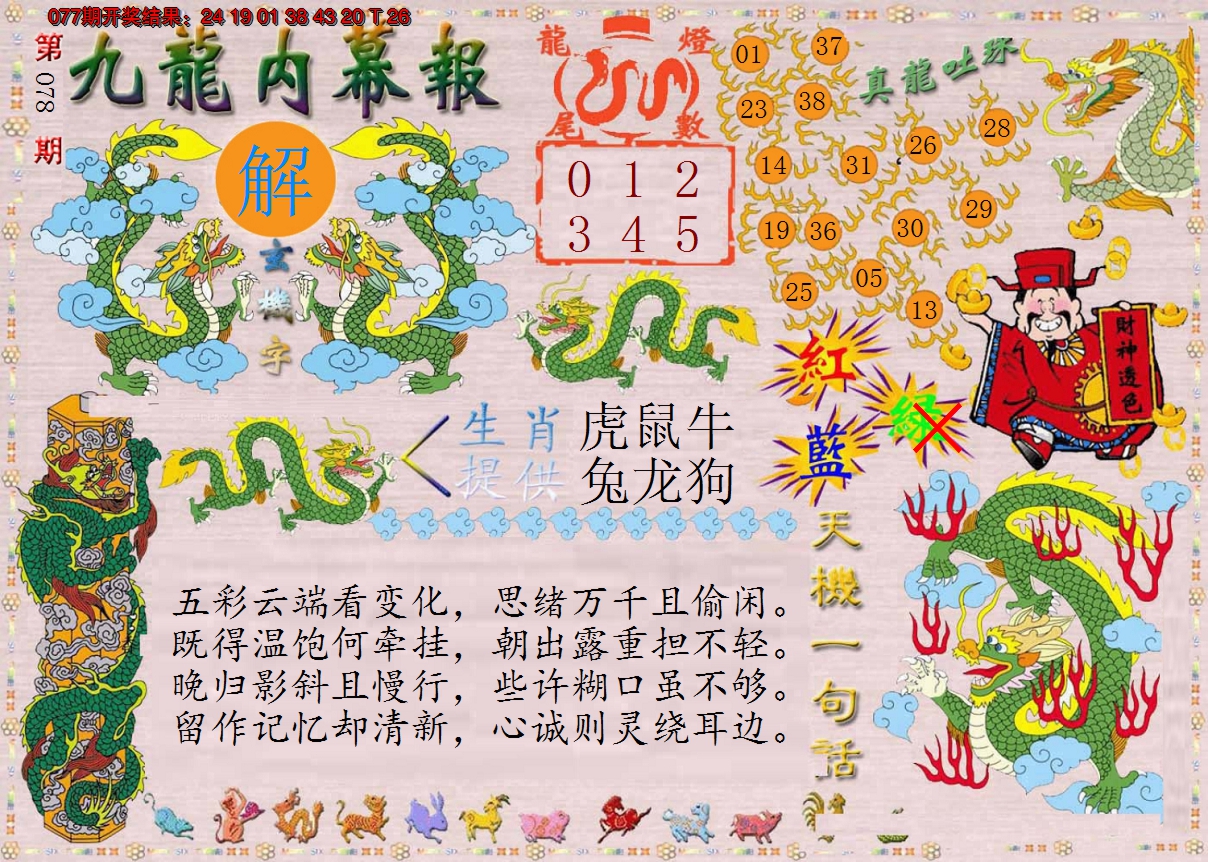 077期开奖结果：24 19 01 36 43 20 T 26
第078期
九龍内幕報
解
玄機字
龍燈
尾數
0 1 2
3 4 5
真龍吐珠
01 37
23 38
14 31 26 28
19 36 30 29
25 05 13
財神透色
紅
綠
藍
生肖提供
虎鼠牛
兔龙狗
天機一句话
五彩云端看变化，思绪万千且偷闲。
既得温饱何牵挂，朝出露重担不轻。
晚归影斜且慢行，些许糊口虽不够。
留作记忆却清新，心诚则灵绕耳边。